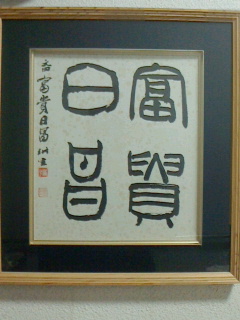 富貴
日昌
富貴日昌